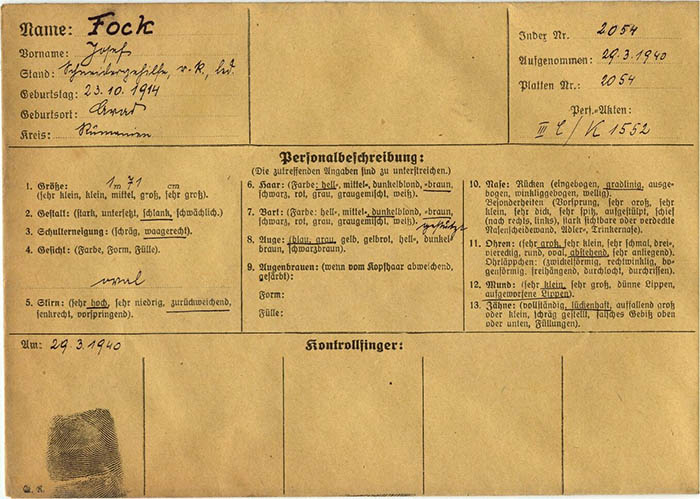 Name: Fock
Vorname: Josef
Stand: Schneidergehilfe, r.k., led.
Geburtstag: 23.10.1914
Geburtsort: Arad
Kreis: Rümänien
Index Nr. 2054
Aufgenommen: 29.3.1940
Platten Nr.: 2054
Pers.-Akten:
III C/K 1552
Personalbeschreibung:
(Die zutreffenden Angaben sind zu unterstreichen.)
1. Größe: 1 m 71 cm
(sehr klein, klein, mittel, groß, sehr groß).
2. Gestalt: (stark, untersetzt, schlank, schwächlich).
3. Schulterneigung: (schräg, waagerecht).
4. Gesicht: (Farbe, Form, Fülle).
oval
5. Stirn: (sehr hoch, sehr niedrig, zurückweichend,
senkrecht, vorspringend).
6. Haar: (Farbe: hell-, mittel-, dunkelblond, -braun,
schwarz, rot, grau, graugemischt, weiß).
7. Bart: (Farbe: hell-, mittel-, dunkelblond, -braun,
schwarz, rot, grau, graugemischt, weiß). gestutzt
8. Auge: (blau, grau, gelb, gelbrot, hell-, dunkel-
braun, schwarzbraun).
9. Augenbrauen: (wenn vom Kopfhaar abweichend,
gefärbt):
Form:
Fülle:
10. Nase: Rücken (eingebogen, gradlinig, ausge-
bogen, winkliggebogen, wellig).
Besonderheiten (Vorsprung, sehr groß, sehr
klein, sehr dick, sehr spitz, aufgestülpt, schief
(nach rechts, links), stark sichtbare oder verdeckte
Nasenscheidewand, Adler-, Trinkernase).
11. Ohren: (sehr groß, sehr klein, sehr schmal, drei-,
viereckig, rund, oval, abstehend, sehr anliegend).
Ohrläppchen: (zwickelförmig, rechtwinklig, bo-
genförmig, freihängend, durchlocht, durchrissen).
12. Mund: (sehr klein, sehr groß, dünne Lippen,
aufgeworfene Lippen).
13. Zähne: (vollständig, lückenhaft, auffallend groß
oder klein, schräg gestellt, falsches Gebiß oben
oder unten, Füllungen).
Am: 29.3.1940
Kontrollfinger: